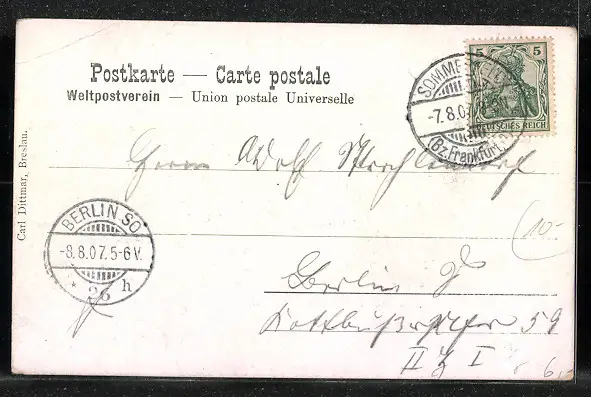 Postkarte — Carte postale
Weltpostverein — Union postale Universelle
5 5
DEUTSCHES REICH
SOMME
-7.8.07
(Bz. Frankfurt
Carl Dittmar, Breslau.
Herrn Adolf
BERLIN SO
-8.8.07. 5-6 V.
* 26 h
10-
Berlin
59
II I
6,-